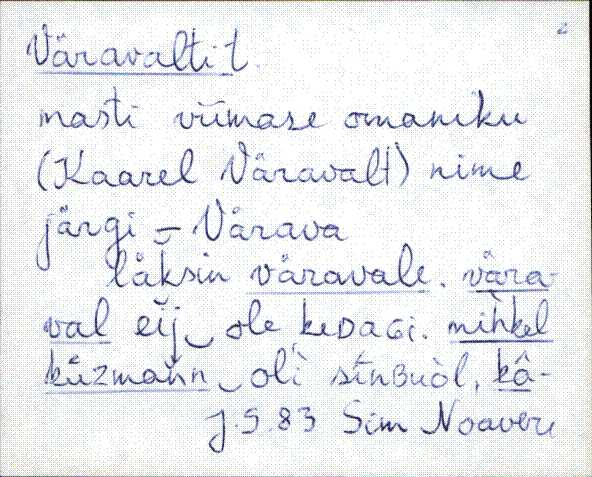 2
Väravaltit
nasti viimase omaniku
(Kaarel Väravalt) nime
järgi – Värava
läksin väravale. vära-
val eìj‿ole keDaGi. mìhkel
küzmàn̄n‿olì sīnBuòl, kâ-
J.S.83 Sim Noavere